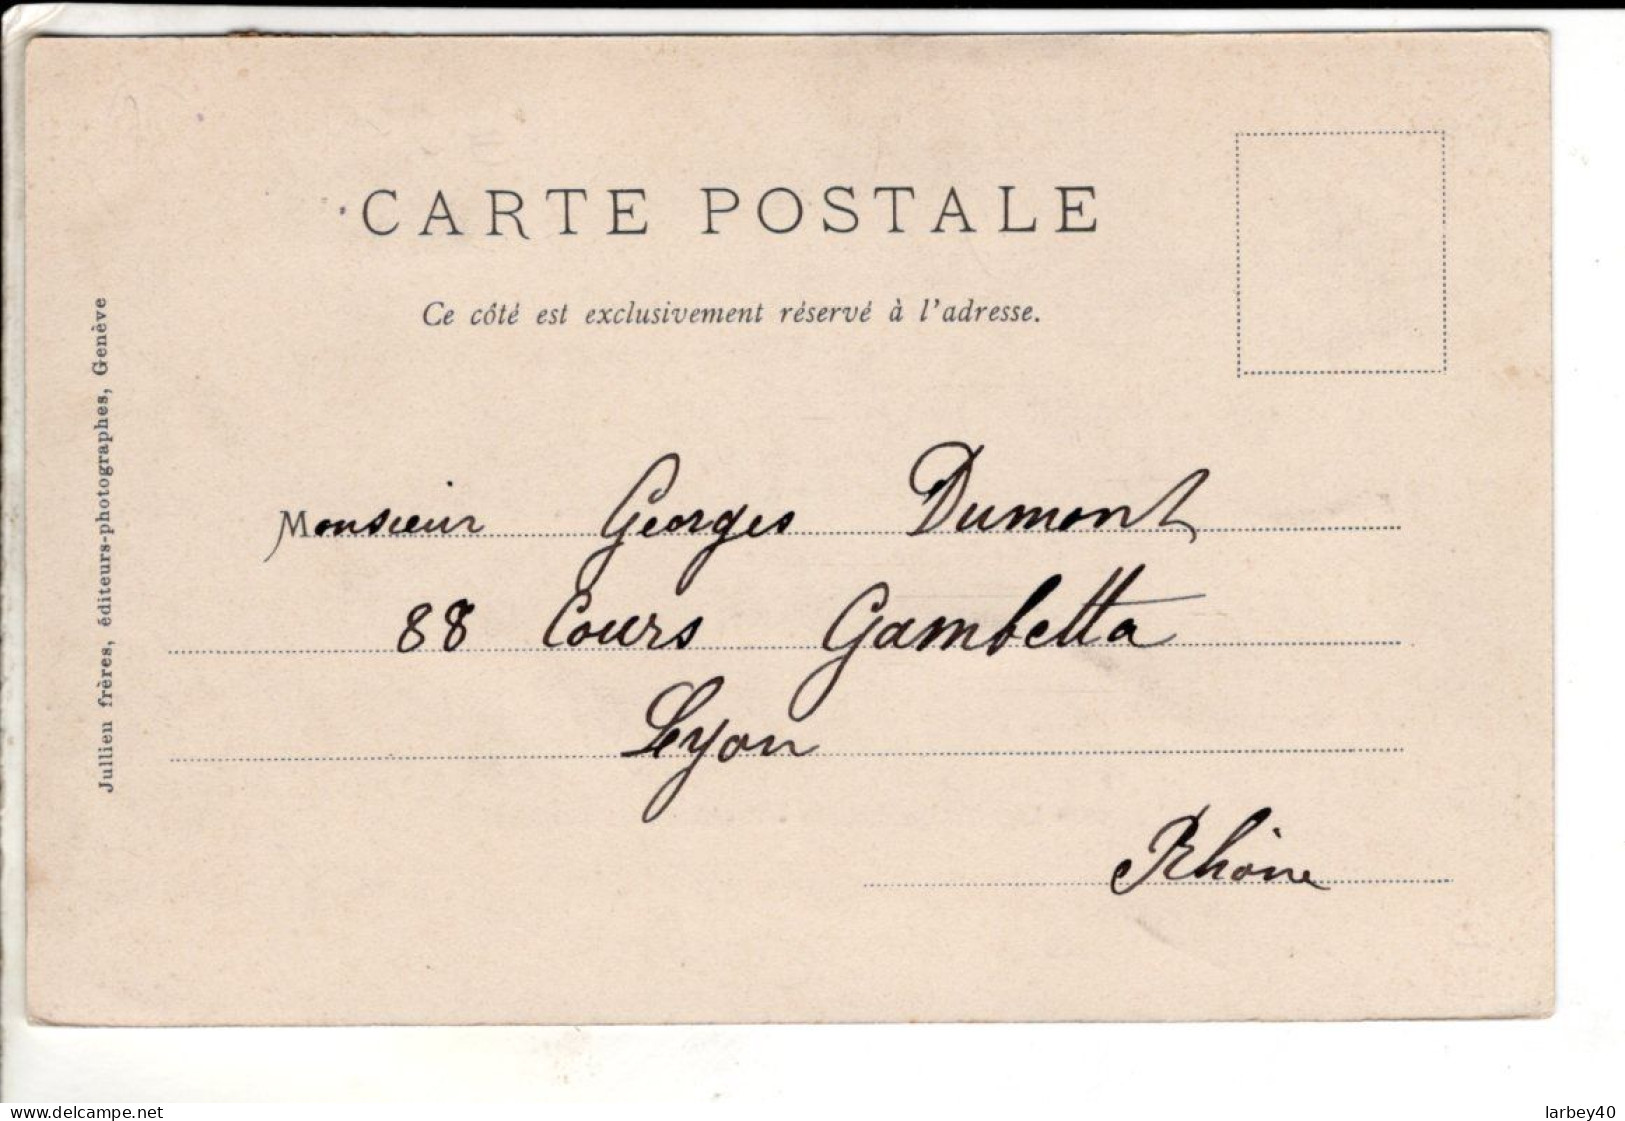 CARTE POSTALE
Ce côté est exclusivement réservé à l'adresse.
Jullien frères, éditeurs-photographes, Genève
Monsieur Georges Dumont
88 Cours Gambetta
Lyon
Rhône
www.delcampe.net
larbey40